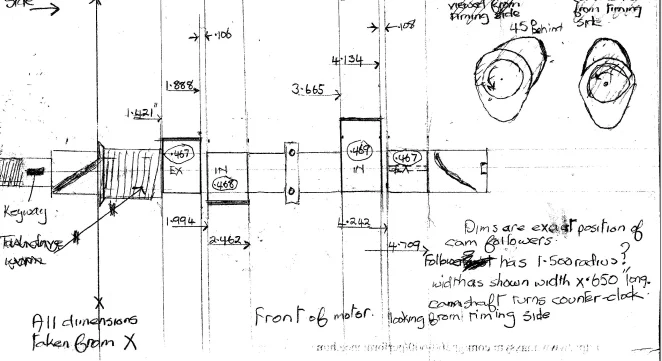 side
viewed from
timing side
from timing
side
45° behind
.106
.108
1.888
4.134
3.665
1.421"
.467
EX
IN
.468
.469
IN
.467
EX
Keyway
1.994
2.462
4.242
4.709
Dims are exact position of
cam followers.
follower has 1.500 radius?
width as shown width x .650" long.
camshaft turns counter-clock
looking from timing side
Front of motor.
X
All dimensions
taken from X